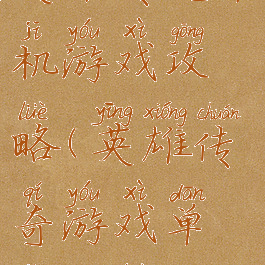 jī yóu xì gōng
机游戏攻
lüè yīng xióng chuán
略(英雄传
qí yóu xì dān
奇游戏单